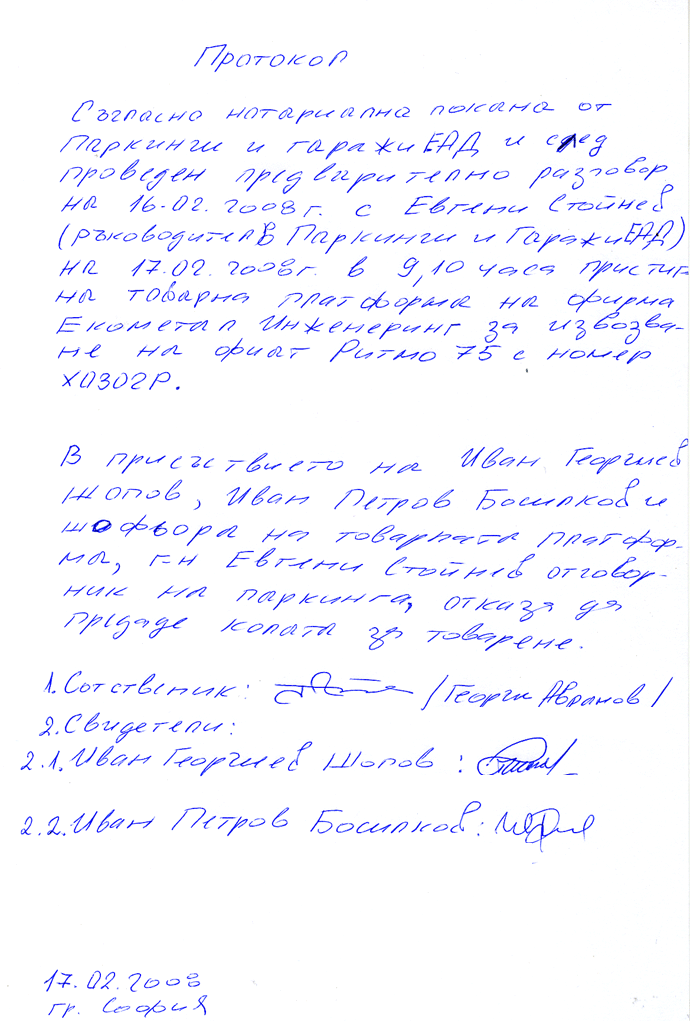 Протокол
Съгласно нотариална покана от
Паркинги и гаражи ЕАД и след
проведен предварително разговор
на 16.02.2008г. с Евгени Стойнев
(ръководител в Паркинги и Гаражи ЕАД)
на 17.02.2008г. в 9,10 часа пристиг-
на товарна платформа на фирма
Екометал Инженеринг за извозва-
не на фиат Ритмо 75 с номер
Х0302Р.
В присъствието на Иван Георгиев
Шопов, Иван Петров Босилков и
шофьора на товарната платфор-
ма, г-н Евгени Стойнев отговор-
ник на паркинга, отказа да
предаде колата за товарене.
1. Сотственик: /Георги Аврамов/
2. Свидетели:
2.1. Иван Георгиев Шопов:
2.2. Иван Петров Босилков:
17.02.2008
гр. София